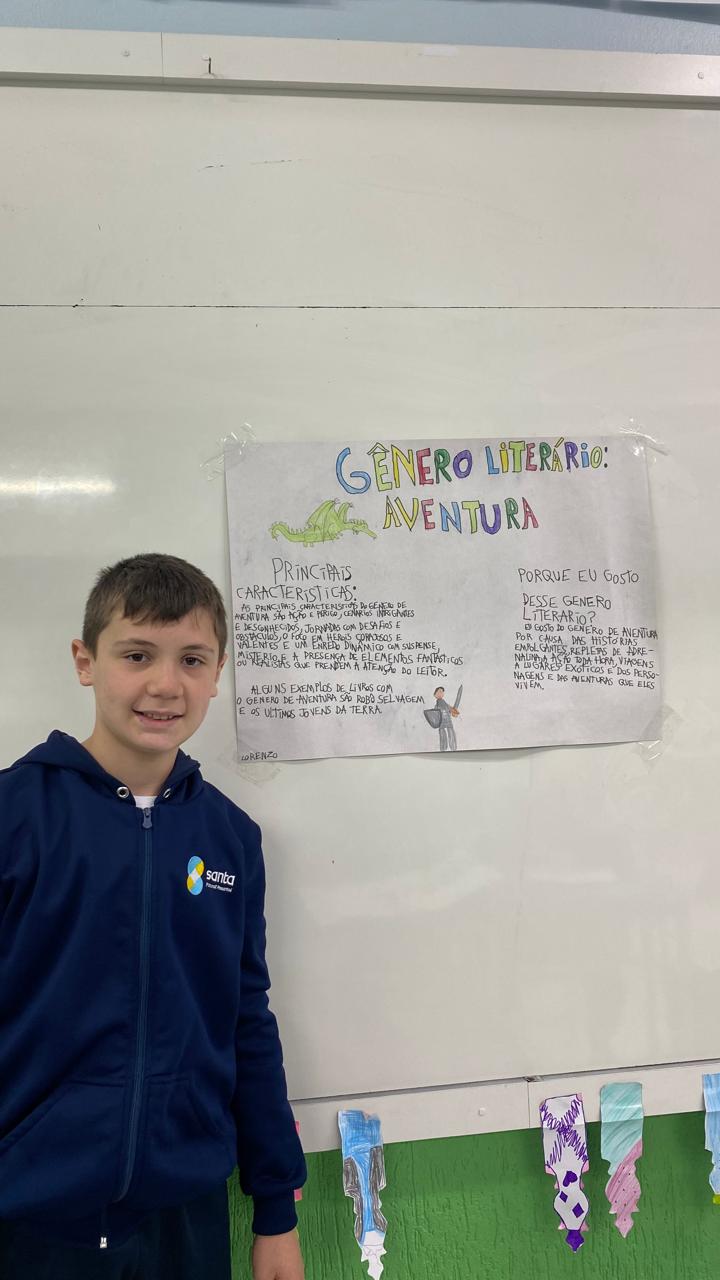 GÊNERO LITERÁRIO:
AVENTURA
PRINCIPAIS
CARACTERÍSTICAS:
AS PRINCIPAIS CARACTERÍSTICAS DO GÊNERO DE
AVENTURA SÃO AÇÃO E PERIGO, CENÁRIOS INTRIGANTES
E DESCONHECIDOS, JORNADAS COM DESAFIOS E
OBSTÁCULOS, O FOCO EM HERÓIS CORAJOSOS E
VALENTES E UM ENREDO DINÂMICO COM SUSPENSE,
MISTÉRIO E A PRESENÇA DE ELEMENTOS FANTÁSTICOS
OU REALISTAS QUE PRENDEM A ATENÇÃO DO LEITOR.
ALGUNS EXEMPLOS DE LIVROS COM
O GÊNERO DE AVENTURA SÃO ROBÔ SELVAGEM
E OS ULTIMOS JOVENS DA TERRA.
LORENZO
PORQUE EU GOSTO
DESSE GENERO
LITERÁRIO?
EU GOSTO DO GENERO DE AVENTURA
POR CAUSA DAS HISTÓRIAS
EMPOLGANTES, REPLETAS DE ADRE-
NALINA E AÇÃO TODA HORA, VIAGENS
A LUGARES EXÓTICOS E DOS PERSO-
NAGENS E DAS AVENTURAS QUE ELES
VIVEM.
santa